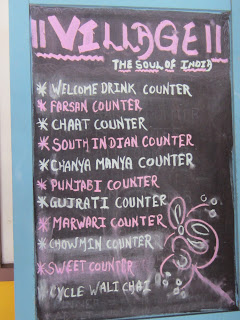 "VILLAGE"
THE SOUL OF INDIA
* WELCOME DRINK COUNTER
* FARSAN COUNTER
* CHAAT COUNTER
* SOUTH INDIAN COUNTER
* CHANYA MANYA COUNTER
* PUNJABI COUNTER
* GUJRATI COUNTER
* MARWARI COUNTER
* CHOWMIN COUNTER
* SWEET COUNTER
* CYCLE WALI CHAI